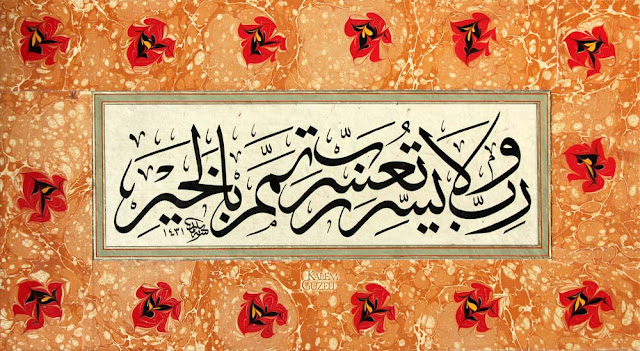 رب يسر ولا تعسر رب تمم بالخير
١٤٣١
KALEM
GÜZELİ